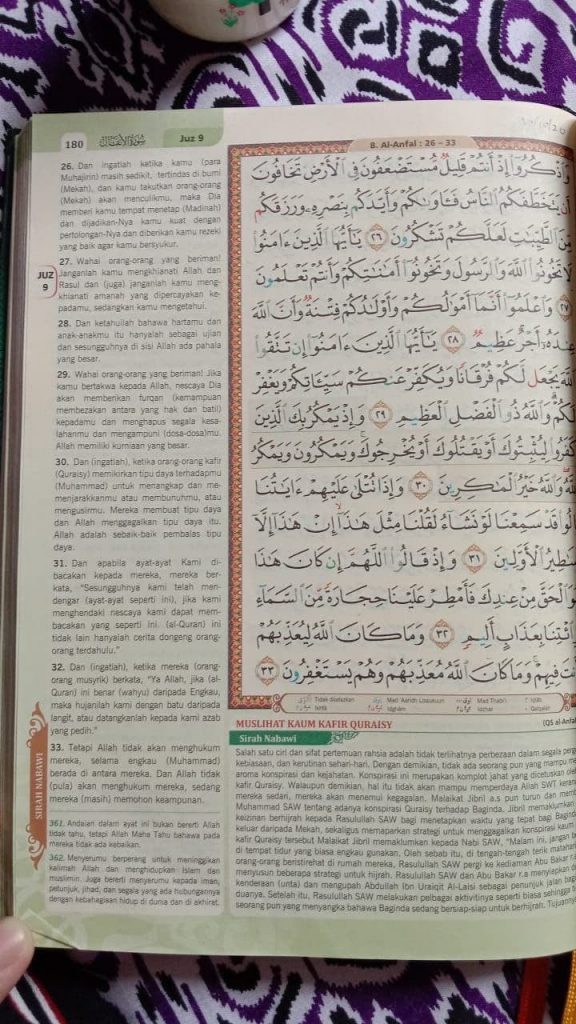 180
سورة الأنفال
Juz 9
26. Dan ingatlah ketika kamu (para
Muhajirin) masih sedikit, tertindas di bumi
(Mekah), dan kamu takutkan orang-orang
(Mekah) akan menculikmu, maka Dia
memberi kamu tempat menetap (Madinah)
dan dijadikan-Nya kamu kuat dengan
pertolongan-Nya dan diberikan kamu rezeki
yang baik agar kamu bersyukur.
27. Wahai orang-orang yang beriman!
Janganlah kamu mengkhianati Allah dan
Rasul dan (juga) janganlah kamu meng-
khianati amanah yang dipercayakan ke-
padamu, sedangkan kamu mengetahui.
28. Dan ketahuilah bahawa hartamu dan
anak-anakmu itu hanyalah sebagai ujian
dan sesungguhnya di sisi Allah ada pahala
yang besar.
29. Wahai orang-orang yang beriman! Jika
kamu bertakwa kepada Allah, nescaya Dia
akan memberikan furqan (kemampuan
membezakan antara yang hak dan batil)
kepadamu dan menghapus segala kesa-
lahanmu dan mengampuni (dosa-dosa)mu.
Allah memiliki kurniaan yang besar.
30. Dan (ingatlah), ketika orang-orang kafir
(Quraisy) memikirkan tipu daya terhadapmu
(Muhammad) untuk menangkap dan me-
menjarakkanmu atau membunuhmu, atau
mengusirmu. Mereka membuat tipu daya
dan Allah menggagalkan tipu daya itu.
Allah adalah sebaik-baik pembalas tipu
daya.
31. Dan apabila ayat-ayat Kami di-
bacakan kepada mereka, mereka ber-
kata, "Sesungguhnya kami telah men-
dengar (ayat-ayat seperti ini), jika kami
menghendaki nescaya kami dapat mem-
bacakan yang seperti ini. (al-Quran) ini
tidak lain hanyalah cerita dongeng orang-
orang terdahulu."
32. Dan (ingatlah), ketika mereka (orang-
orang musyrik) berkata, "Ya Allah, jika (al-
Quran) ini benar (wahyu) daripada Engkau,
maka hujanilah kami dengan batu daripada
langit, atau datangkanlah kepada kami azab
yang pedih."
33. Tetapi Allah tidak akan menghukum
mereka, selama engkau (Muhammad)
berada di antara mereka. Dan Allah tidak
(pula) akan menghukum mereka, sedang
mereka (masih) memohon keampunan.
361. Andaian dalam ayat ini bukan bererti Allah
tidak tahu, tetapi Allah Maha Tahu bahawa pada
mereka tidak ada kebaikan.
362. Menyerumu berperang untuk meninggikan
kalimah Allah dan menghidupkan Islam dan
muslimin. Juga bererti menyerumu kepada iman,
petunjuk, jihad, dan segala yang ada hubungannya
dengan kebahagiaan hidup di dunia dan di akhirat.
JUZ
9
SIRAH NABAWI
8. Al-Anfal : 26 – 33
وَٱذْكُرُوٓا۟ إِذْ أَنتُمْ قَلِيلٌ مُّسْتَضْعَفُونَ فِى ٱلْأَرْضِ تَخَافُونَ
أَن يَتَخَطَّفَكُمُ ٱلنَّاسُ فَـَٔاوَىٰكُمْ وَأَيَّدَكُم بِنَصْرِهِۦ وَرَزَقَكُم
مِّنَ ٱلطَّيِّبَـٰتِ لَعَلَّكُمْ تَشْكُرُونَ ٢٦ يَـٰٓأَيُّهَا ٱلَّذِينَ ءَامَنُوا۟
لَا تَخُونُوا۟ ٱللَّهَ وَٱلرَّسُولَ وَتَخُونُوٓا۟ أَمَـٰنَـٰتِكُمْ وَأَنتُمْ تَعْلَمُونَ
٢٧ وَٱعْلَمُوٓا۟ أَنَّمَآ أَمْوَٰلُكُمْ وَأَوْلَـٰدُكُمْ فِتْنَةٌ وَأَنَّ ٱللَّهَ
عِندَهُۥٓ أَجْرٌ عَظِيمٌ ٢٨ يَـٰٓأَيُّهَا ٱلَّذِينَ ءَامَنُوٓا۟ إِن تَتَّقُوا۟
ٱللَّهَ يَجْعَل لَّكُمْ فُرْقَانًا وَيُكَفِّرْ عَنكُمْ سَيِّـَٔاتِكُمْ وَيَغْفِرْ
لَكُمْ وَٱللَّهُ ذُو ٱلْفَضْلِ ٱلْعَظِيمِ ٢٩ وَإِذْ يَمْكُرُ بِكَ ٱلَّذِينَ
كَفَرُوا۟ لِيُثْبِتُوكَ أَوْ يَقْتُلُوكَ أَوْ يُخْرِجُوكَ وَيَمْكُرُونَ وَيَمْكُرُ
ٱللَّهُ وَٱللَّهُ خَيْرُ ٱلْمَـٰكِرِينَ ٣٠ وَإِذَا تُتْلَىٰ عَلَيْهِمْ ءَايَـٰتُنَا
قَالُوا۟ قَدْ سَمِعْنَا لَوْ نَشَآءُ لَقُلْنَا مِثْلَ هَـٰذَآ إِنْ هَـٰذَآ إِلَّآ
أَسَـٰطِيرُ ٱلْأَوَّلِينَ ٣١ وَإِذْ قَالُوا۟ ٱللَّهُمَّ إِن كَانَ هَـٰذَا
هُوَ ٱلْحَقَّ مِنْ عِندِكَ فَأَمْطِرْ عَلَيْنَا حِجَارَةً مِّنَ ٱلسَّمَآءِ
أَوِ ٱئْتِنَا بِعَذَابٍ أَلِيمٍ ٣٢ وَمَا كَانَ ٱللَّهُ لِيُعَذِّبَهُمْ
وَأَنتَ فِيهِمْ وَمَا كَانَ ٱللَّهُ مُعَذِّبَهُمْ وَهُمْ يَسْتَغْفِرُونَ ٣٣
MUSLIHAT KAUM KAFIR QURAISY
(QS al-Anfal
Sirah Nabawi
Salah satu ciri dan sifat pertemuan rahsia adalah tidak terlihatnya perbezaan dalam segala
kebiasaan, dan kerutinan sehari-hari. Dengan demikian, tidak ada seorang pun yang mampu
aroma konspirasi dan kejahatan. Konspirasi ini merupakan komplot jahat yang dicetuskan
kafir Quraisy. Walaupun demikian, hal itu tidak akan mampu memperdaya Allah SWT
mereka sedari, mereka akan menemui kegagalan. Malaikat Jibril a.s pun turun dan
Muhammad SAW tentang adanya konspirasi Quraisy terhadap Baginda. Jibril memaklumkan
keizinan berhijrah kepada Rasulullah SAW bagi menetapkan waktu yang tepat bagi
keluar daripada Mekah, sekaligus memaparkan strategi untuk menggagalkan konspirasi kaum
kafir Quraisy tersebut Malaikat Jibril memaklumkan kepada Nabi SAW, "Malam ini, jangan
di tempat tidur yang biasa engkau gunakan. Oleh sebab itu, di tengah-tengah terik
orang-orang beristirehat di rumah mereka, Rasulullah SAW pergi ke kediaman Abu Bakar
menyusun beberapa strategi untuk hijrah. Rasulullah SAW dan Abu Bakar r.a menyiapkan
kenderaan (unta) dan mengupah Abdullah Ibn Uraiqit Al-Laisi sebagai penunjuk jalan
duanya. Setelah itu, Rasulullah SAW melakukan pelbagai aktivitinya seperti biasa sehingga
seorang pun yang menyangka bahawa Baginda sedang bersiap-siap untuk berhijrah.